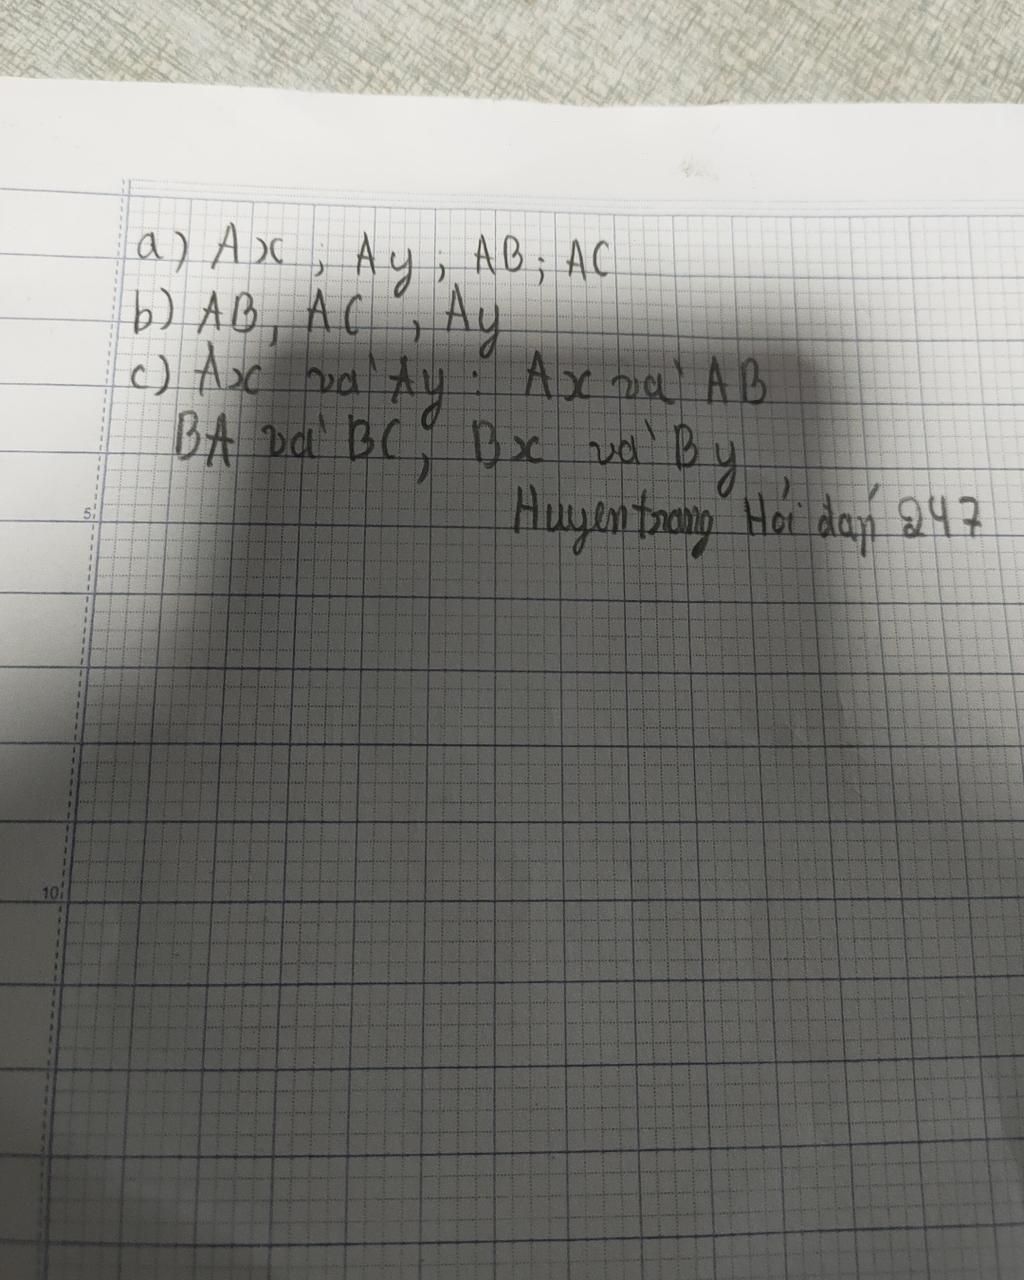 a) Ax ; Ay ; AB ; AC
b) AB, AC , Ay
c) Ax và Ay : Ax và AB
BA và BC ; Bx và By
5
Huyentrang Hỏi đáp 247
10